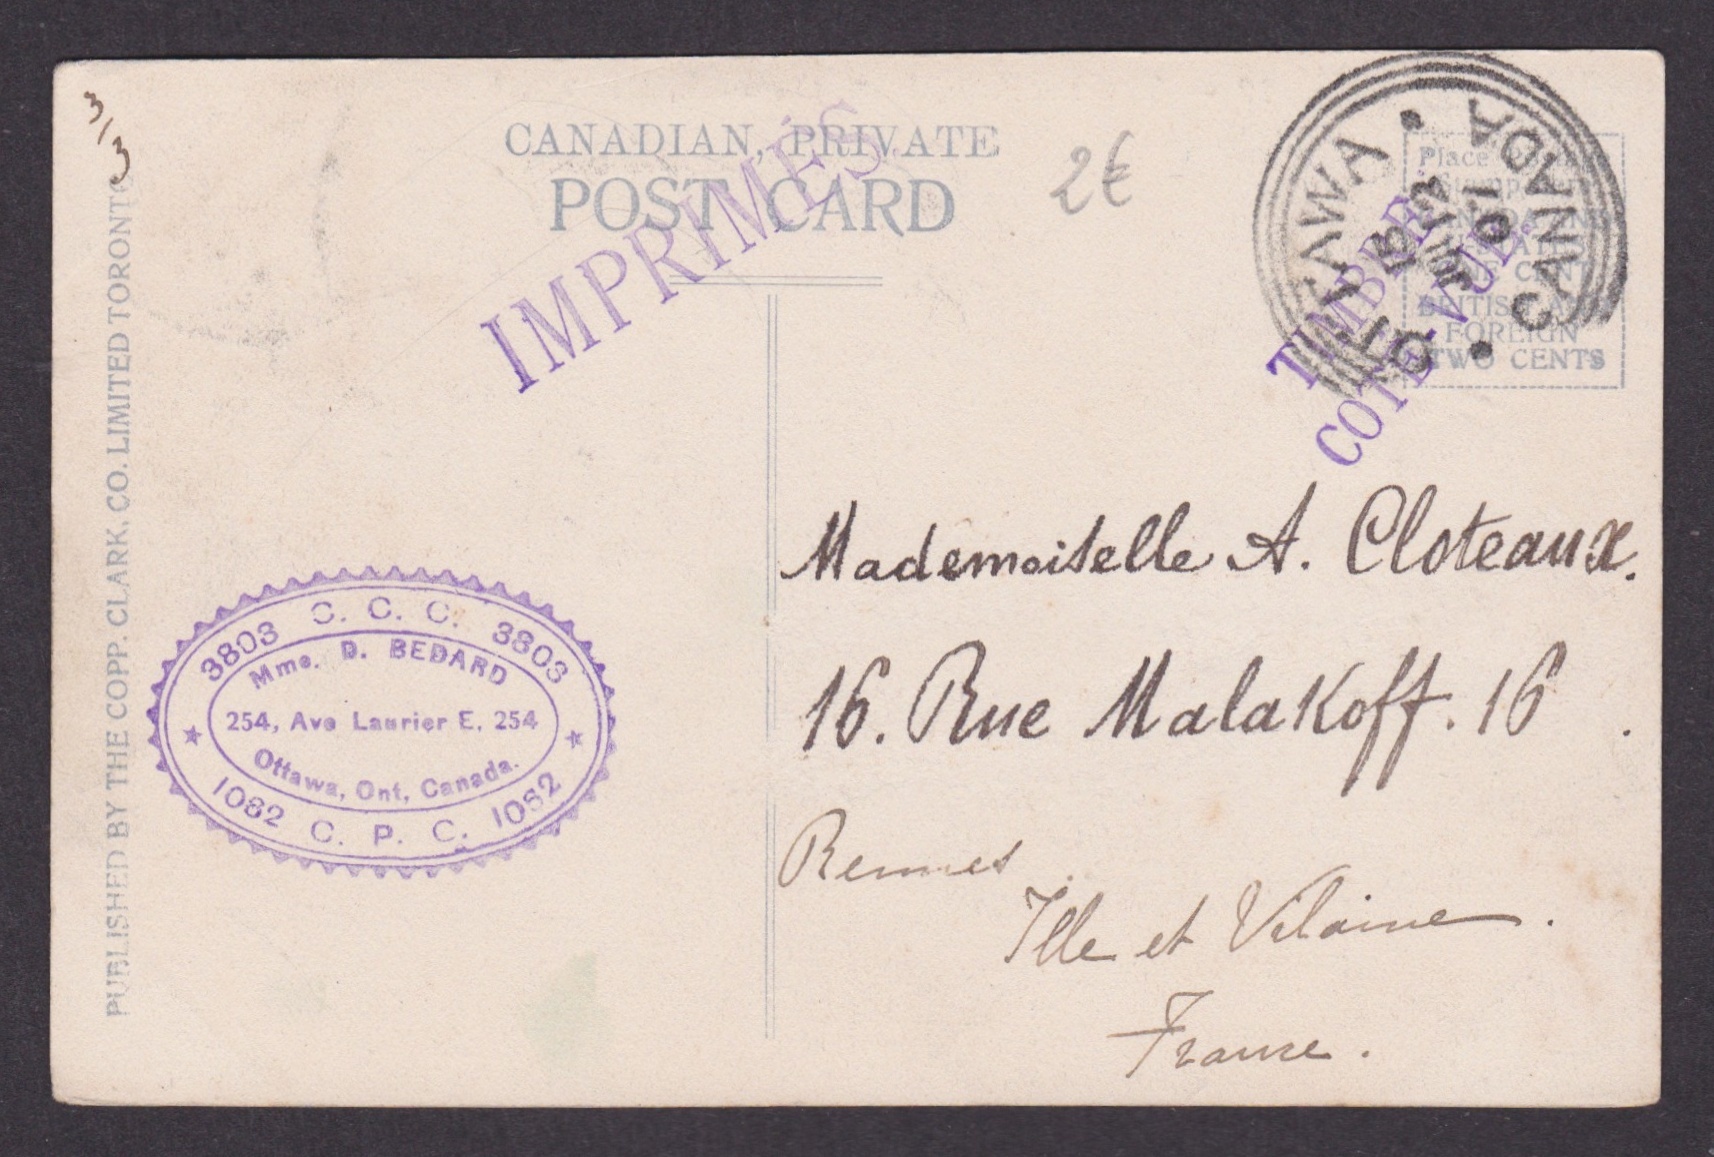 3/3
CANADIAN, PRIVATE
POST CARD
IMPRIMÉS
2€
OTTAWA • CANADA •
13
JUL 12
01
TIMBRE
COTÉ-VUE
Place
ONE CENT
BRITISH AND
FOREIGN
TWO CENTS
PUBLISHED BY THE COPP. CLARK, CO. LIMITED TORONTO
Mademoiselle A. Cloteaux.
16. Rue Malakoff. 16.
Rennes
Ille et Vilaine.
France.
3803 C. C. C. 3803
Mme. D. BEDARD
254, Ave Laurier E. 254
Ottawa, Ont, Canada.
1082 C. P. C. 1082